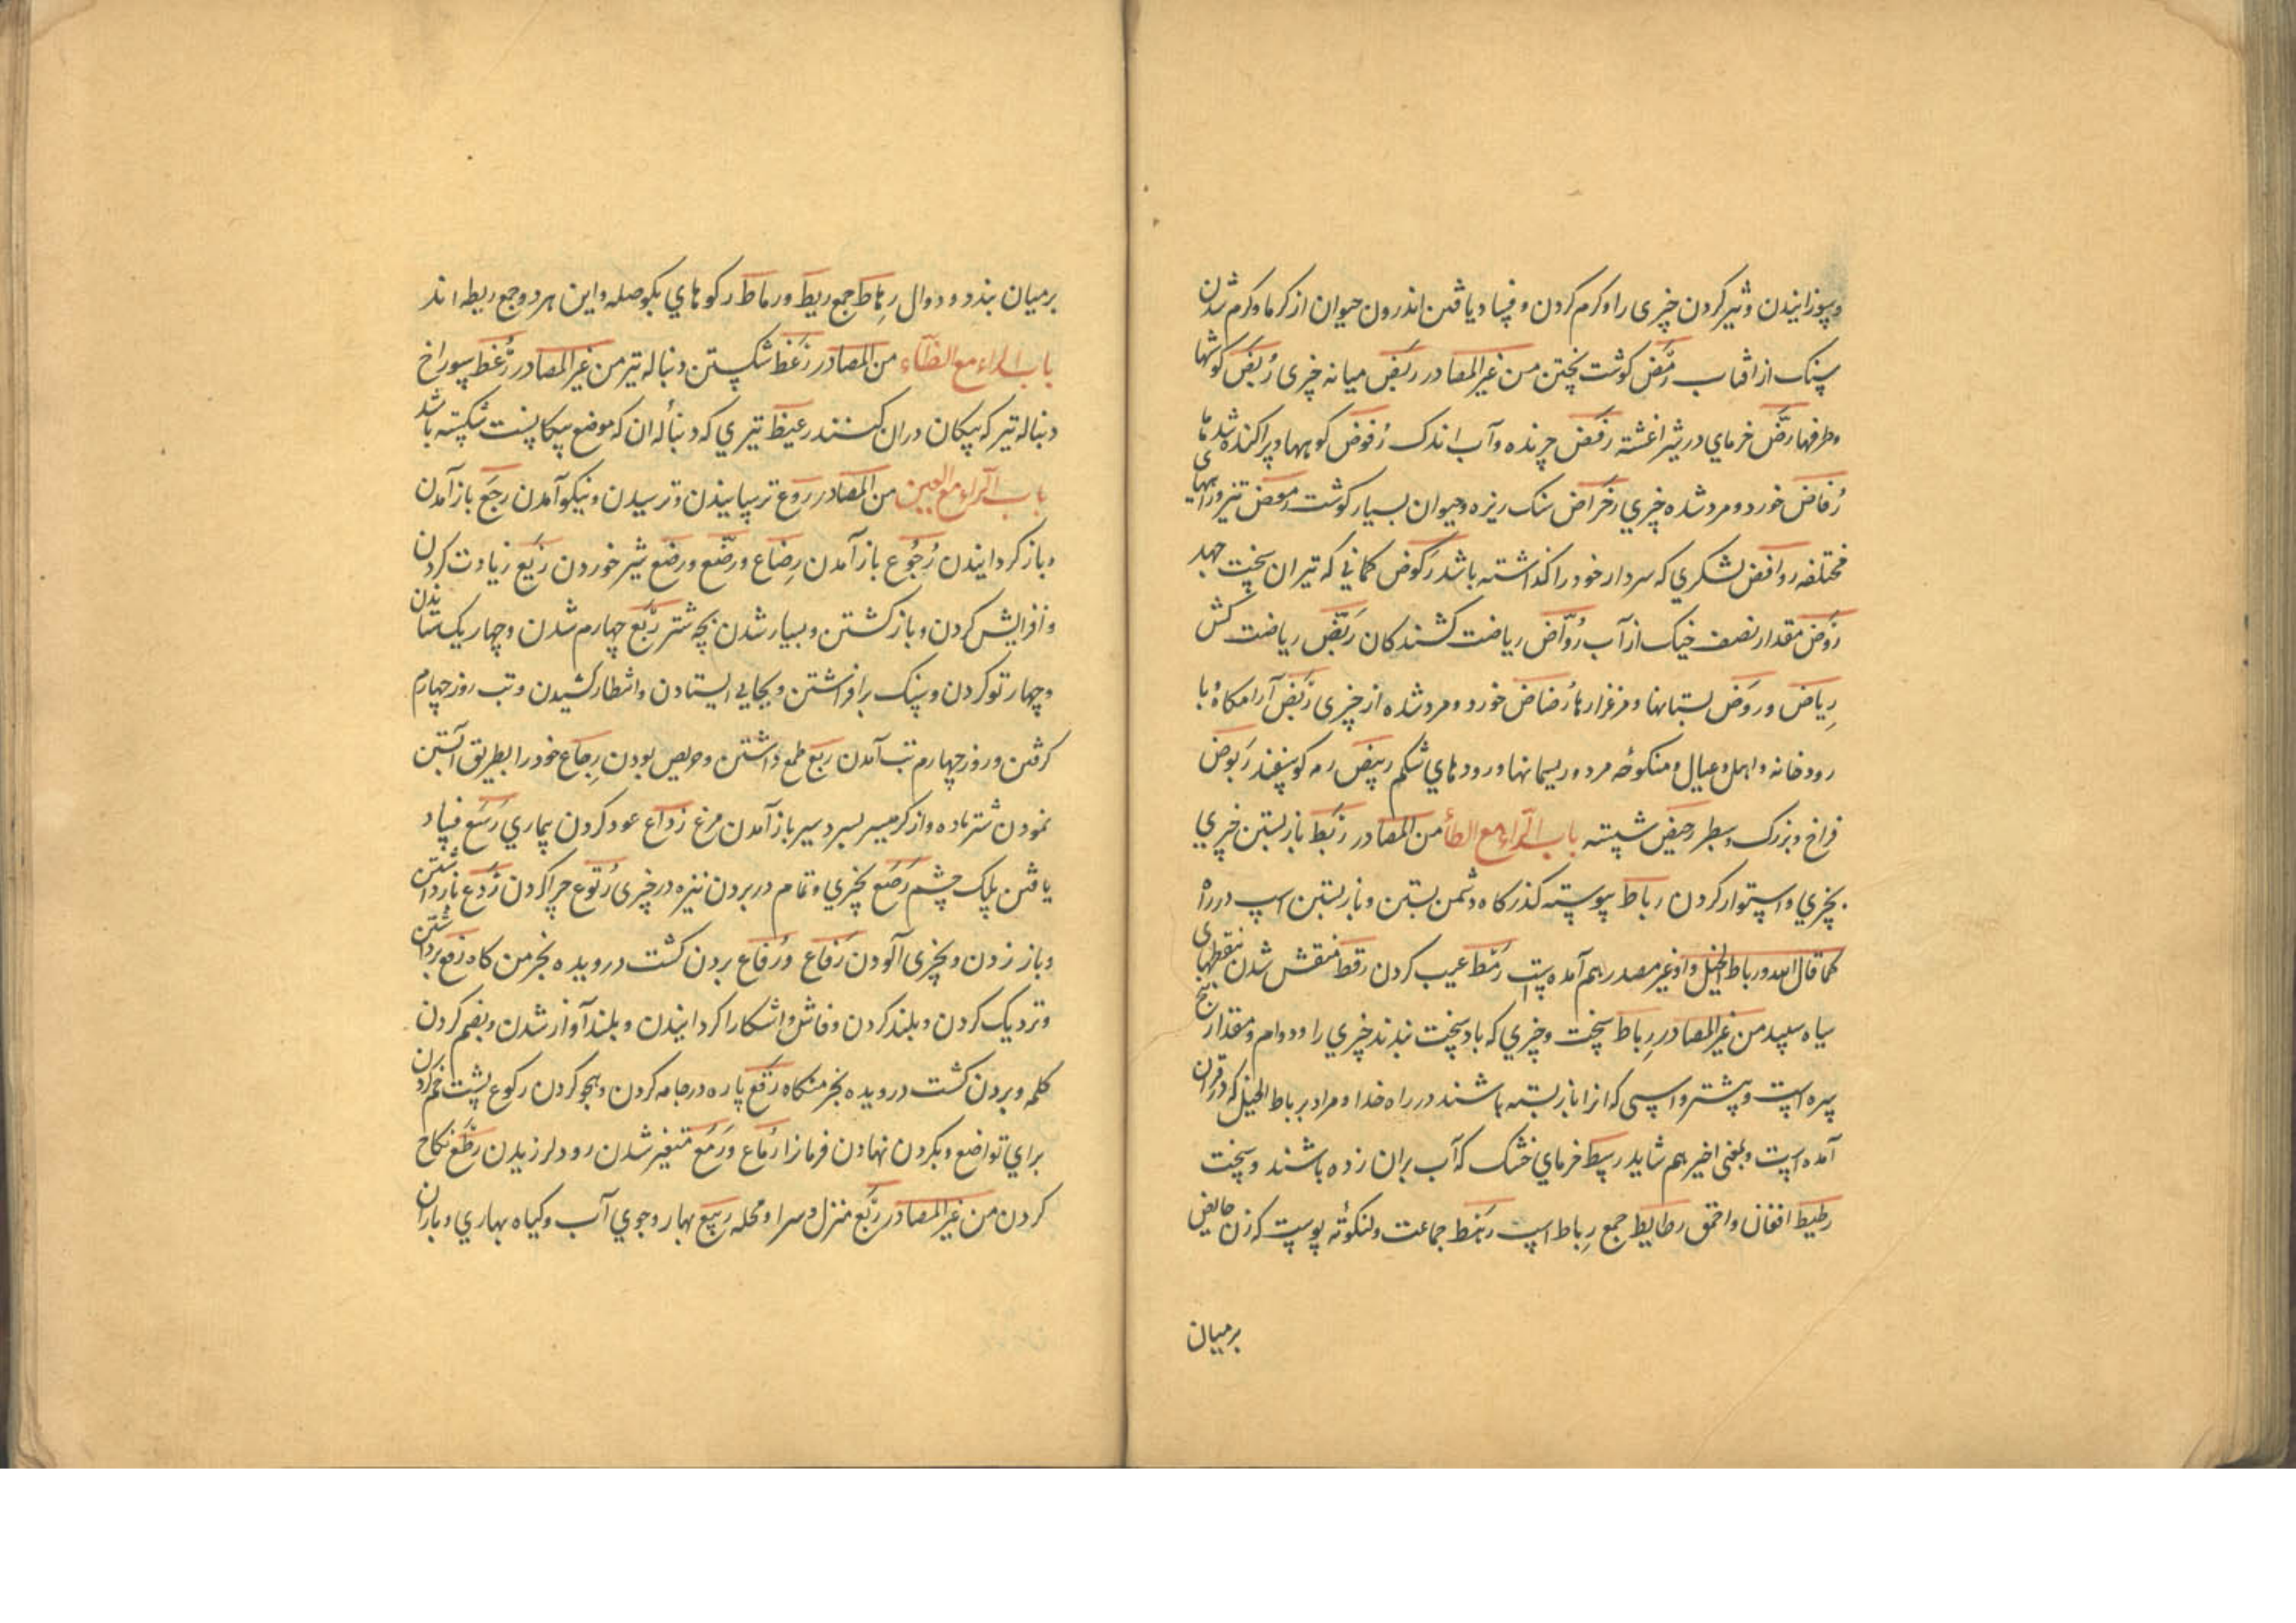 وسوزانیدن و تیز کردن چیزی را و کرم کردن و فساد یافتن اندرون حیوان از کرما و کرم شدن
سنک از افتاب رَمَّض کوشت پختن من غیر المصادر رَبَض میانه چیزی رُبُض کوشها
و طرفها رضّ خرمای در شیر اغشته رَفَض چرنده و آب اندک رُفوض کوهها و پراکنده شدها
رُفاض خورد و مرد شده چیزی رَضراض سنک ریزه و حیوان بسیار کوشت رمض تیز و راههای
مختلفه روافض لشکری که سردار خود را کذاشته باشد رَکوض کمانی که تیر ان سخت جهد
رَوض مقدار نصف خیک از آب رُوّاض ریاضت کشندکان رَیّض ریاضت کش
رِیاض و رَوض بستانها و مرغزارها رُضاض خورد و مرد شده از چیزی رَبَض آرامکاه با
رودخانه و اهل و عیال و منکوحه مرد و ریسمانها و رودهای شکم ربیض رمه کوسفند رَبوض
فراخ و بزرک و سطبر رحیض شسته باب الرّاء مع الطّا من المصادر رَبط باز بستن چیزی
بچیزی و استوار کردن رباط پیوسته کذرکاه دشمن بستن و باز بستن اسب در راه
کما قال الله و رباط الخیل و از غیر مصدر هم آمده است رَمط عیب کردن رقط منقش شدن نقطهای
سیاه سپید من غیر المصادر رِباط سخت و چیزی که باد سخت بندند چیزی را و دوام و مقدار پنج
سره اسپ و بیشتر و اسپی که انرا باز بسته باشند در راه خدا و مراد بر باط الخیل که در قران
آمده است و بمعنی اخیر هم شاید ربیط خرمای خشک که آب بران زده باشند و سخت
رطیط افغان و احمق رطایط جمع رِباط اسپ رَهط جماعت و لنکوته پوست که زن حایض
برمیان
برمیان بندد و دوال رِهاط جمع رَیط و رِیاط رکوهای یکوصله و این هر دو جمع ریطه اند
باب الراء مع الظاء من المصادر رَعظ شکستن دنباله تیر من غیر المصادر رُعظ سوراخ
دنباله تیر که پیکان در ان کنند رعیظ تیری که دنبالهٔ ان که موضع پیکانست شکسته باشد
باب الرّاء مع العین من المصادر رَوع ترسانیدن و ترسیدن و نیکو آمدن رَجع باز آمدن
و باز کردانیدن رُجُوع باز آمدن رِضاع و رضّع و رضع شیر خوردن رَیع زیادت کردن
و افزایش کردن و باز کشتن و بسیار شدن بچه شتر رَبع چهارم شدن و چهار یک ستاندن
و چهار تو کردن و سنک برافراشتن و بجایی ایستادن و انتظار کشیدن و تب روز چهارم
کرفتن و روز چهارم تب آمدن رَبع طمع داشتن و حریص بودن رِجاع خود را بطریق آبستن
نمودن شتر ماده و از کرمسیر بسردسیر باز آمدن مرغ رُداع عود کردن بیماری رَسَع فساد
یافتن پلک چشم رَصَع بچیزی و تمام در بردن نیزه در چیزی رُتوع چرا کردن رَدع باز داشتن
و باز زدن و بچیزی آلودن رَفاع و رُفاع بردن کشت درویده بخرمن کاه رفع برداشتن
و نزدیک کردن و بلند کردن و فاش و اشکارا کردانیدن و بلند آواز شدن و بضم کردن
کلمه و بردن کشت درویده بخرمنکاه رَقع پاره در جامه کردن و هجو کردن رکوع پشت خم کردن
برای تواضع و بکردن نهادن فرمانرا رُماع و رَمع متغیر شدن رو و لرزیدن رطع نکاح
کردن من غیر المصادر رَبع منزل و سرا و محله ربیع بهار و جوی آب و کیاه بهاری و باران